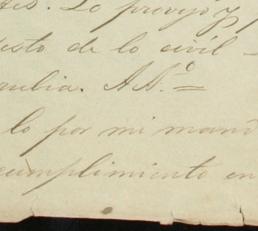 Lo proveyó y
esto de lo civil
milia. A. N.º =
lo por mi mand
cumplimiento en